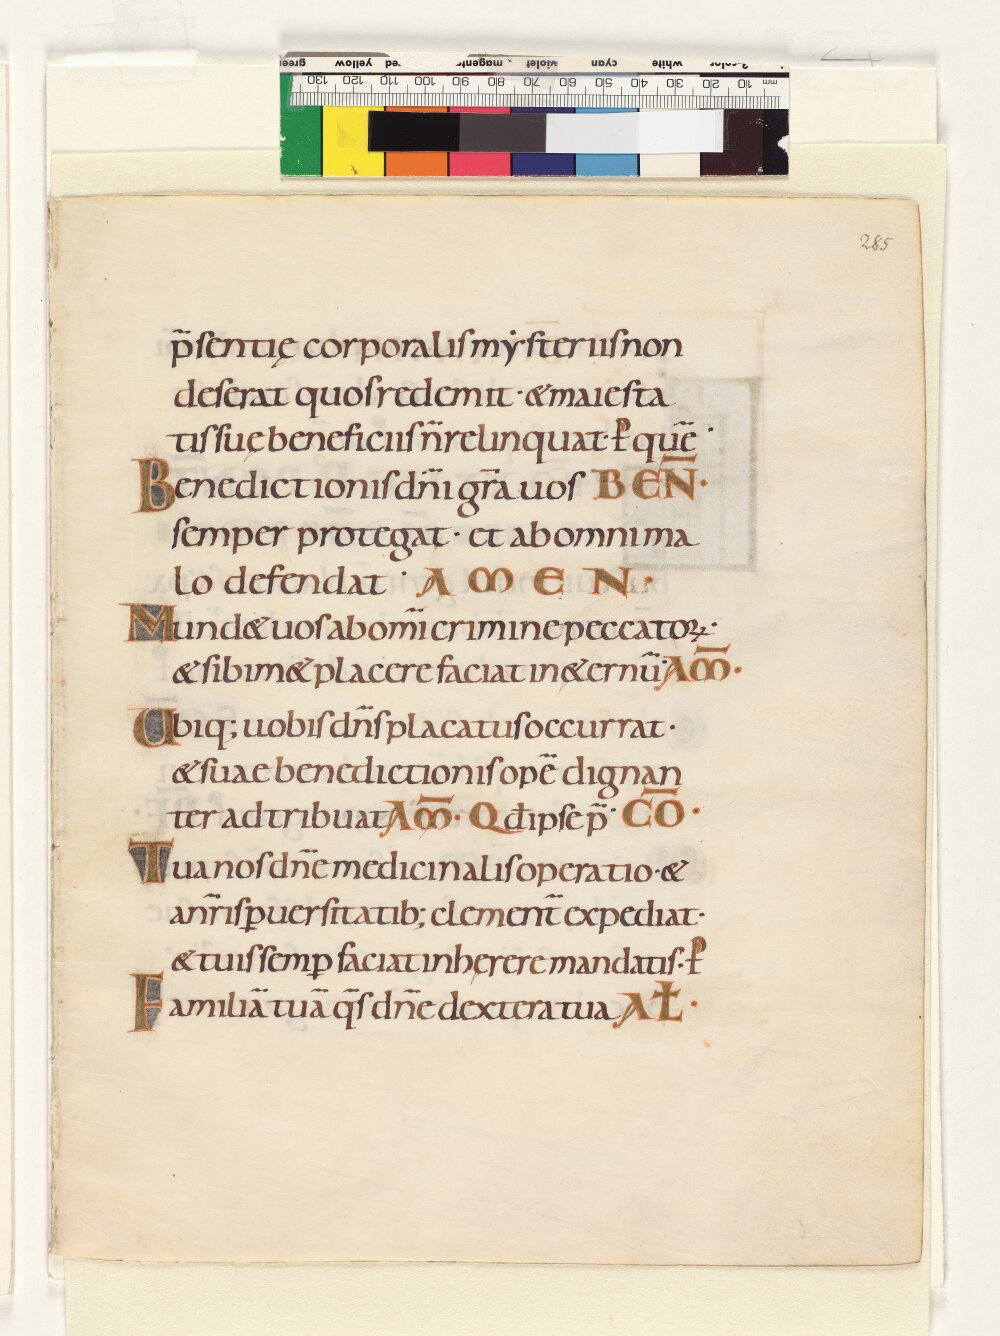 green yellow red magenta violet cyan white 3-color
130 120 110 100 90 80 70 60 50 40 30 20 10 mm
285
p̄sentię corporalis mẏsteriis non
deserat quos redemit · & maiesta
tis suę beneficiis n̄ relinquat · P quē ·
Benedictionis dn̄i gr̄a uos BEN̄ ·
semper protegat · et ab omni ma
lo defendat · AMEN ·
Mund& uos ab om̄i crimine peccatoꝝ ·
& sibim& placere faciat in &ernū · AM̄ ·
Ubiq; uobis dn̄s placatus occurrat ·
& suae benedictionis opē dignan
ter adtribuat AM̄ · Qđ ipse p̄ · CŌ ·
Tua nos dn̄e medicinalis operatio · &
a nr̄is ꝑuersitatib; clement̄ expediat ·
& tuis semꝑ faciat inherere mandatis · P
Familiā tuā q̄s dn̄e dextera tua AŁ ·